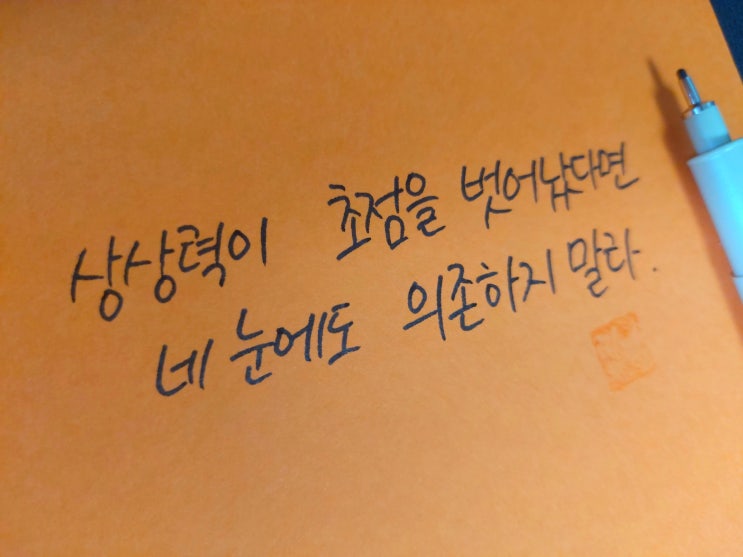 상상력이 초점을 벗어났다면
네 눈에도 의존하지 말라.